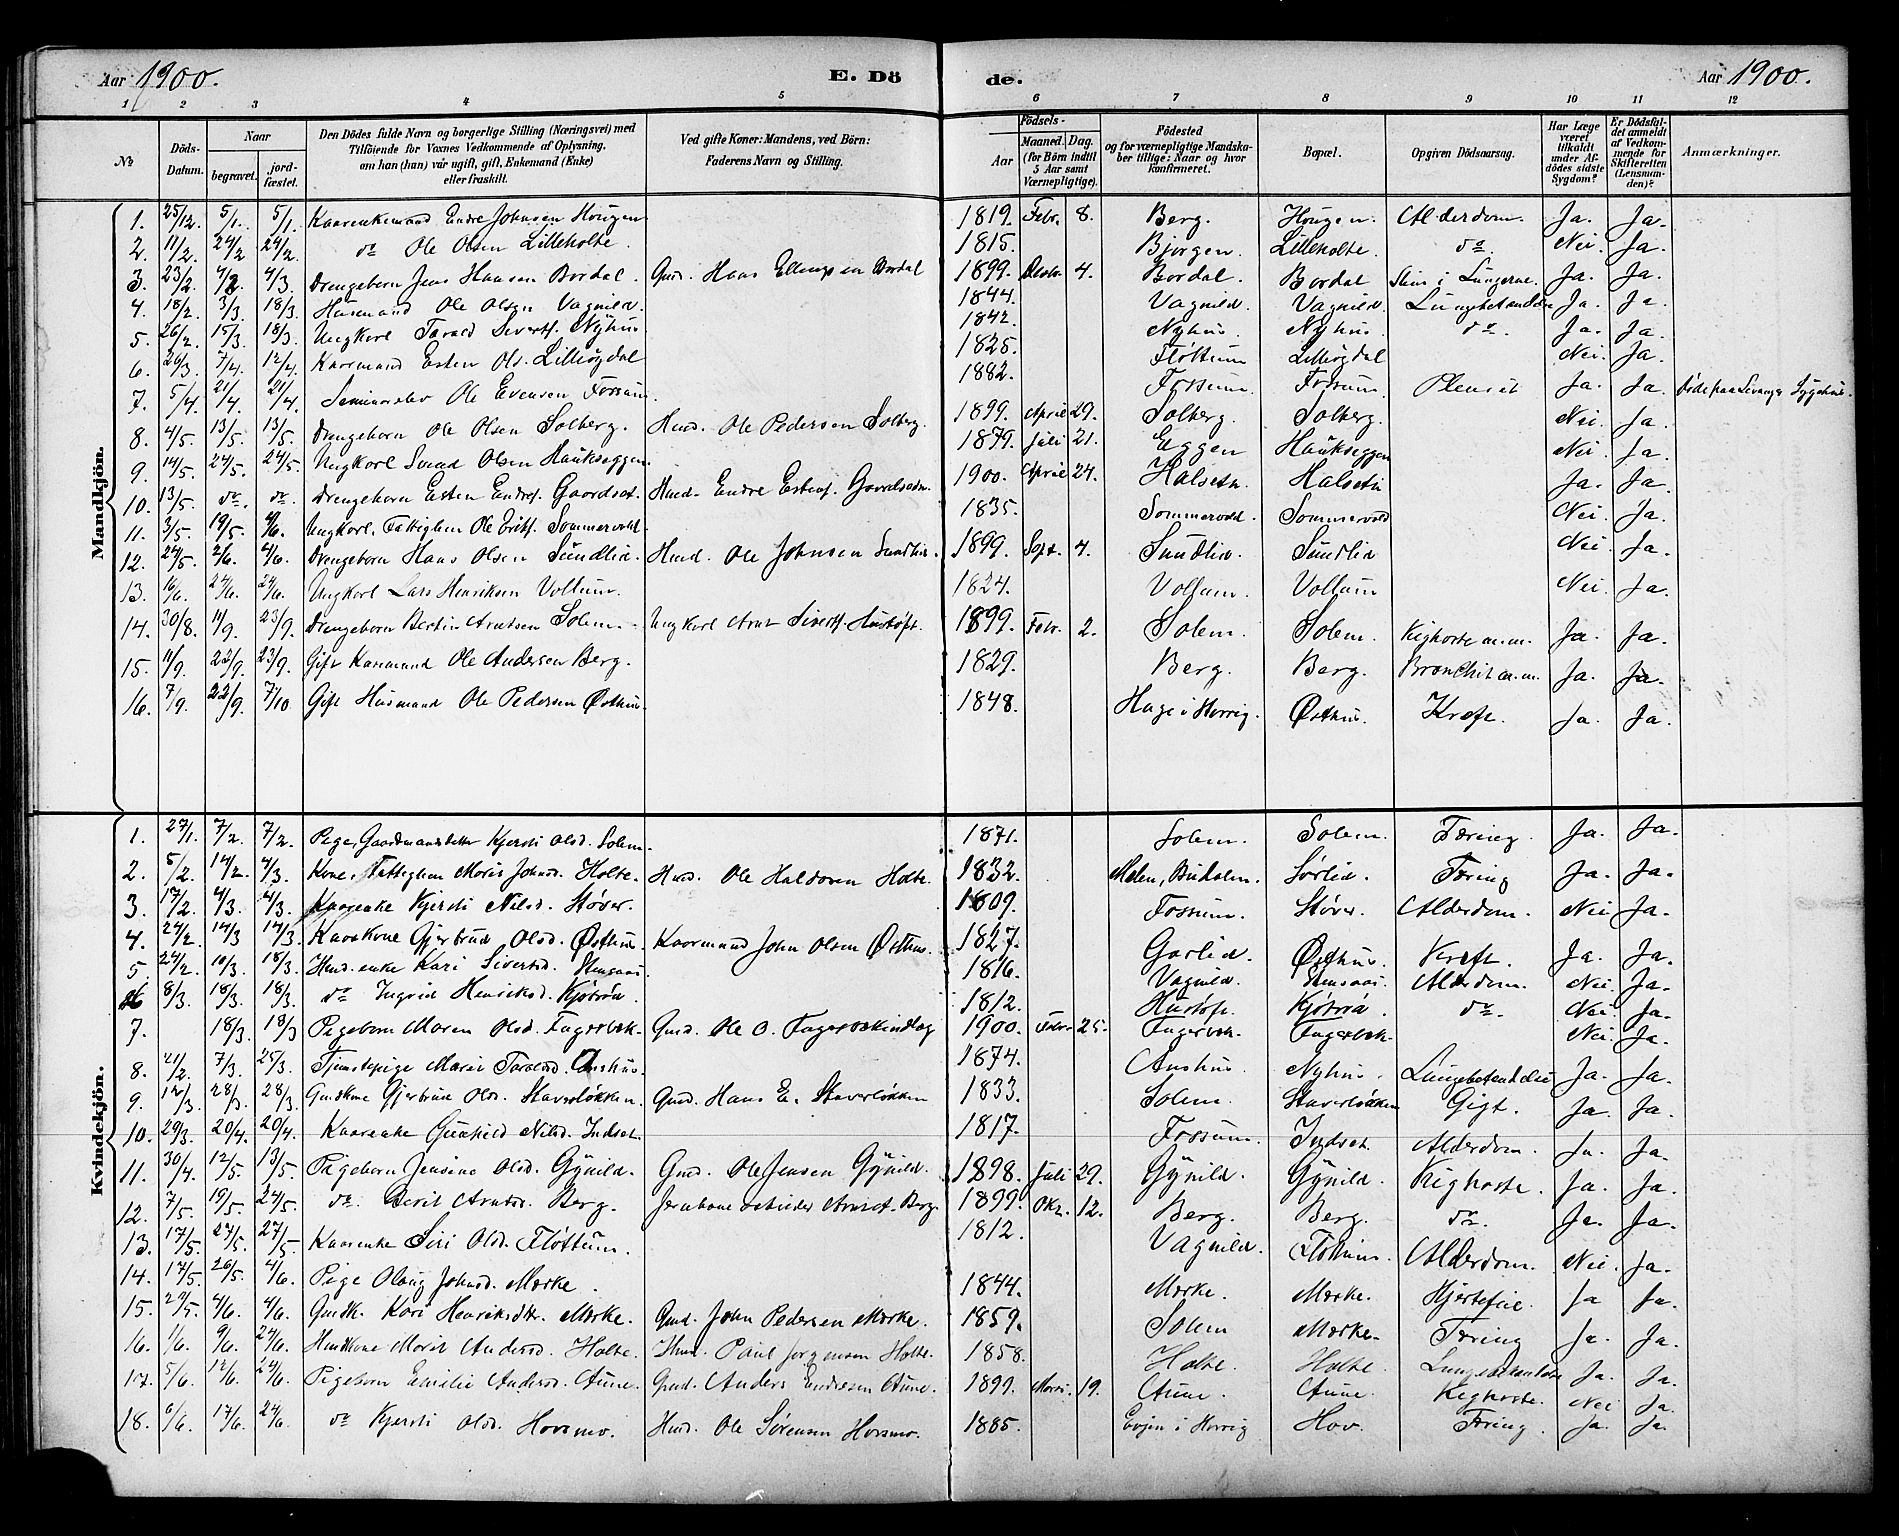 Aar 1900. E. Dö de. Aar 1900.
1 2 3 4 5 6 7 8 9 10 11 12
No. Döds-Datum. Naar begravet. jord-fæstet. Den Dödes fulde Navn og borgerlige Stilling (Næringsvei) med Tilföiende for Voxnes Vedkommende af Oplysning, om han (hun) vår ugift, gift, Enkemand (Enke) eller fraskilt. Ved gifte Koner: Mandens, ved Börn: Faderens Navn og Stilling. Födsels- Aar Maaned. Dag. (for Börn indtil 5 Aar samt Værnepligtige). Födested og for værnepligtige Mandskaber tillige: Naar og hvor konfirmeret. Bopæl. Opgiven Dödsaarsag. Har Læge været tilkaldt under Afdödes sidste Sygdom? Er Dödsfaldet anmeldt af Vedkommende for Skifteretten (Lensmanden)? Anmærkninger.
Mandkjön.
1. 25/12. 5/1. 5/1. Kaarenkemand Endre Johnsen Hougen 1819. Febr. 8. Berg. Hougen. Alderdom. Ja. Ja.
2. 11/2 24/2 24/2. do Ole Olsen Lilleholte. 1815. Bjørgen. Lilleholte. do. Nei. Ja.
3. 23/2. 4/3 4/3. Drengebarn Jens Hansen Bordal. Gmd. Hans Ellingsen Bordal 1899. Decbr. 4. Bordal. Bordal Slim i Lungerne. Ja. Ja.
4. 18/2. 3/3 18/3. Husmand Ole Olsen Vagnild. 1844. Vagnild. Vagnild. Lungebetændelse Ja. Ja.
5. 26/2. 15/3. 18/3. Ungkarl Tarald Siverts. Nyhus 1842. Nyhus. Nyhus. do. Ja. Ja.
6. 26/3. 7/4. 12/4. Kaarmand Esten Ols. Lilleøgdal 1825. Fløttum Lilleøgdal Nei. Ja.
7. 5/4. 21/4 21/4. Seminarelev Ole Evensen Fossum. 1882. Fossum. Fossum. Pleurit Ja. Ja. Døde paa Levanger Sygehus.
8. 4/5. 13/5. 13/5. Drengebarn Ole Olsen Solberg. Husd. Ole Pedersen Solberg. 1899. April 29. Solberg. Solberg. Nei. Ja.
9. 14/5. 24/5. 24/5. Ungkarl Svend Olsen Haukseggen. 1879. Juli 21. Eggen Haukseggen Nei. Ja.
10. 13/5. do. do. Drengebarn Esten Endres. Husd. Endre Estens. 1900. April 24. Halsetn. Halsetn Ja. Ja.
11. 3/5. 19/5. 4/6. Ungkarl, Fattiglem Ole Eriks. Sommervold. 1835. Sommervold. Sommervold Nei. Ja.
12. 24/5. 2/6. 4/6. Drengebarn Hans Olsen Sundlid. Husd. Ole Johnsen Sundlid. 1899. Sept. 4. Sundlid. Sundlid Nei. Ja.
13. 16/6. 24/6. 24/6. Ungkarl Lars Henriksen Vollum. 1824. Vollum. Vollum Nei Ja.
14. 30/8. 11/9. 23/9. Drengebarn Bertin Arntsen Solem. Ungkarl Arnt Siverts. 1899. Febr. 2. Solem. Solem. Kighoste m.m. Ja. Ja.
15. 11/9. 22/9. 23/9. Gift Kaarmand Ole Andersen Berg. 1829. Berg. Berg. Bronchit m.m. Ja. Ja.
16. 7/9. 22/9. 7/10 Gift Husmand Ole Pedersen Østhus. 1848. Hage i Horrig. Østhus. Kreft. Ja. Ja.
Kvindekjön.
1. 27/1. 7/2. 7/2. Pige, Gaardmandsdatter Kjersti Olsd. Solem. 1871. Solem. Solem. Tæring. Ja. Ja.
2. 5/2. 14/2. 4/3. Kone, Fattiglem Marit Johnsd. Holte. Husd. Ole Haldosen Holte. 1832. Melen, Budalen. Sørlid. Tæring Ja. Ja.
3. 17/2. 4/3. 4/3. Kaarenke Kjersti Nilsd. Støver. 1809. Fossum. Støver. Alderdom. Nei Ja.
4. 24/2. 14/3 14/3. Kaarkone Gjertrud Olsd. Østhus Kaarmand John Olsen Østhus. 1827. Garlid. Østhus. Kreft. Ja. Ja.
5. 24/2. 10/3. 18/3. Husd.enke Kari Sivertsd. Stensaas. 1816. Vagnild. Stensaas. Alderdom. Nei. Ja.
6 8/3. 18/3. 18/3. do Ingrid Henriksd. Kjøtrød. 1812. Kjøtrød. do. Nei. Ja.
7. 18/3. 18/3 Pigebarn Maren Olsd. Fagerbek. Gmd. Ole O. 1900. Febr. 25. Fagerbek. Fagerbek. Nei. Ja.
8. 21/2. 7/3. 25/3. Tjenestepige Marit Taralsd. Aashus. 1874. Aashus. Nyhus. Lungebetændelse Ja. Ja.
9. 12/3. 28/3 28/3. Gmdkone Gjertrud Olsd. Staverløkken. Gmd. Hans E. Staverløkken 1833. Solem. Staverløkken Gigt. Ja. Ja.
10. 29/3. 20/4. 20/4. Kaarenke Gunhild Nilsd. Indset. 1817. Fossum. Indset. Alderdom. Ja. Ja.
11. 30/4 12/5. 13/5. Pigebarn Jensine Olsd. Gynild. Gmd. Ole Jensen Gynild. 1898. Juli 29. Gynild. Gynild. Kighoste. Ja. Ja.
12. 7/5. 19/5. 24/5. do. Berit Arntsd. Berg. Jernbanearbeider Arnt Berg. 1899. Okt. 12. Berg. Berg. do. Ja. Ja.
13. 17/5. 27/5. 27/5. Kaarenke Siri Olsd. Fløttum. 1812. Vagnild. Fløttum. Alderdom. Nei. Ja.
14. 17/5. 26/5. 4/6. Pige Olaug Johnsd. Mærke. 1844. Mærke. Mærke. Hjertefeil. Ja Ja.
15. 29/5. 4/6. 4/6. Gmdk. Kari Henriksdtr. Mærke. Gmd. John Pedersen Mærke. 1859. Solem Mærke. Tæring Ja. Ja.
16. 1/6. 9/6. 24/6. Husdkone Marit Andersd. Holte. Husd. Paul Jørgensen Holte. 1858. Holte. Holte. Lungebetændelse Ja. Ja.
17. 5/6. 12/6. 24/6. Pigebarn Emilie Andersd. Aune. Gmd. Anders Endresen Aune. 1899. Marts. 19. Aune. Aune. Kighoste. Nei Ja.
18. 6/6. 17/6. 24/6. do Kjersti Olsd. Hovsmo. Husd. Ole Sørensen Hovsmo. 1885. Evjen i Horrig Hov. Tæring. Ja. Ja.